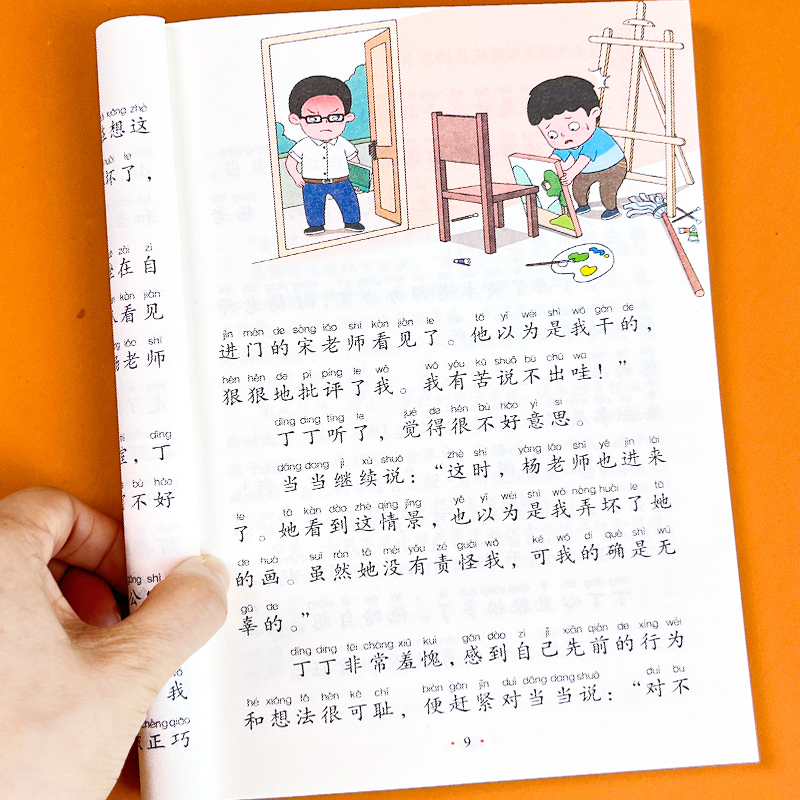 xiǎng zhè
想这
le
坏了，
zài zì
在自
kàn jiàn
看见
lǎo shī
杨老师
dīng
，丁
bù hǎo
不好
我
zhèng qiǎo
正巧
jìn mén de sòng lǎo shī kàn jiàn le tā yǐ wéi shì wǒ gàn de
进门的宋老师看见了。他以为是我干的，
hěn hěn de pī píng le wǒ wǒ yǒu kǔ shuō bù chū wa
狠狠地批评了我。我有苦说不出哇！”
dīng dīng tīng le jué de hěn bù hǎo yì si
丁丁听了，觉得很不好意思。
dāng dang jì xù shuō zhè shí yáng lǎo shī yě jìn lái
当当继续说：“这时，杨老师也进来
le tā kàn dào zhè qíng jǐng yě yǐ wéi shì wǒ nòng huài le tā
了。她看到这情景，也以为是我弄坏了她
de huà suī rán tā méi yǒu zé guài wǒ kě wǒ dí què shì wú
的画。虽然她没有责怪我，可我的确是无
gū de
辜的。”
dīng dīng fēi cháng xiū kuì gǎn dào zì jǐ xiān qián de xíng wéi
丁丁非常羞愧，感到自己先前的行为
hé xiǎng fǎ hěn kě chǐ biàn gǎn jǐn duì dāng dang shuō duì bu
和想法很可耻，便赶紧对当当说：“对不
9